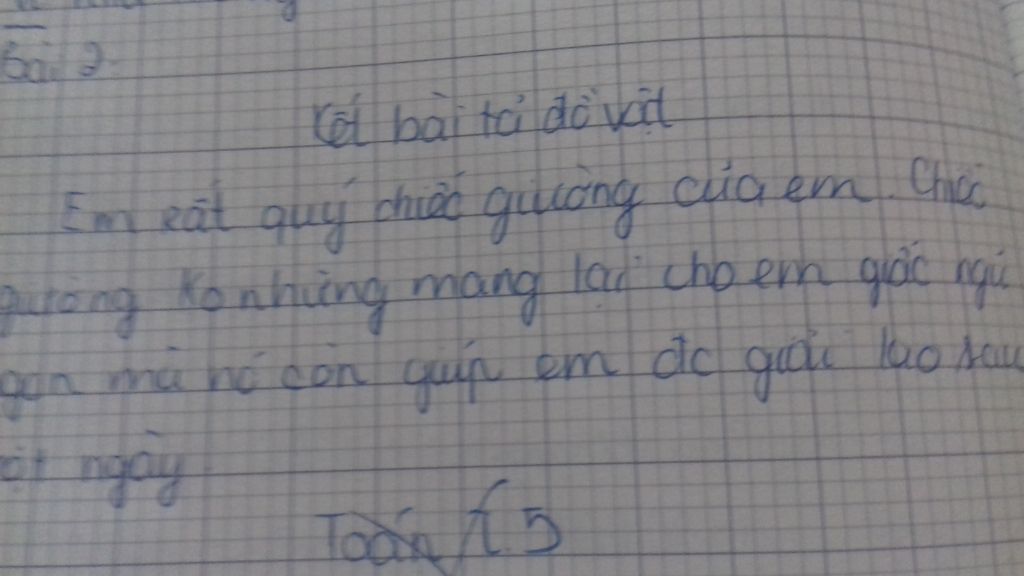 Bài 2
Kết bài tả đồ vật
Em rất quý chiếc giường của em. Chiếc
giường ko những mang lại cho em giấc ngủ
gon mà nó còn giúp em đc giải lao sau
ột ngày
Toán T.5